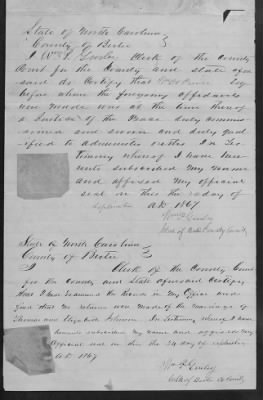 State of North Carolina
County of Bertie
I Wm P Gurley Clerk of the County
Court for the County and state afore
said do Certify that Esq
before whom the foregoing affidavits
were made was at the time there
of a Justice of the Peace duly commis
sioned and sworn and duly qual
ified to administer oaths In Tes
timony whereof I have here
unto subscribed my name
and affixed my official
seal on this the day of
September A.D. 1867
Wm P Gurley
Clerk of Bertie County Court
State of North Carolina
County of Bertie
I Clerk of the County Court
for the County and State aforesaid Certify
that I have examined the Records in my Office and
find that no return was made of the marriage of
Thomas and Elizabeth Johnson In testimony whereof I have
hereunto subscribed my name and affixed my
Official seal on this the 24 day of September
A.D. 1867
Wm P Gurley
Clk of Bertie County